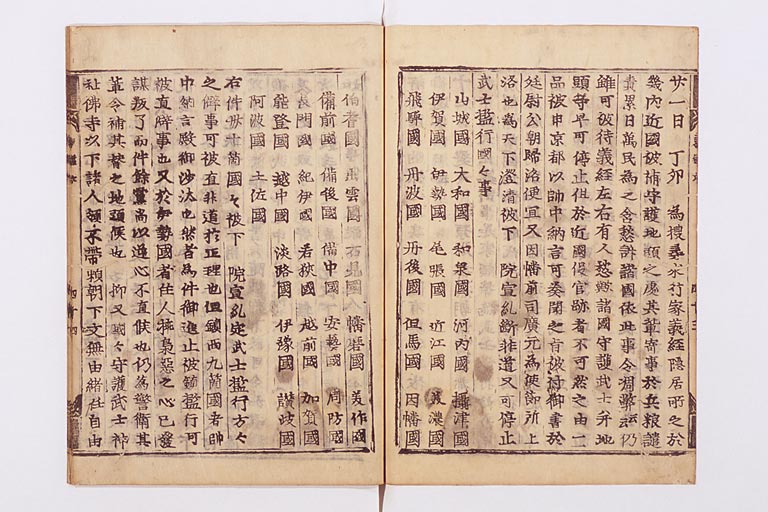 廿一日　丁卯　為搜尋求行家義經隱居所之於
畿内近國被補守護地頭之處其輩寄事於兵粮譴
責累日萬民為之含愁訴諸國依此事令凋弊云々仍
雖可被待義經左右有人愁歟諸國守護武士并地
頭等早可停止但於近國没官跡者不可然之由二
品被申京都以帥中納言可奏聞之旨被付御書於
廷尉公朝歸洛便宜又因幡前司廣元為使節所上
洛也為天下澄清被下　院宣糺断非道又可停止
武士濫行國々事
山城國　大和國　和泉國　河内國　攝津國
伊賀國　伊勢國　尾張國　近江國　美濃國
飛騨國　丹波國　丹後國　但馬國　因幡國
伯耆國　出雲國　石見國　播磨國　美作國
備前國　備後國　備中國　安藝國　周防國
長門國　紀伊國　若狹國　越前國　加賀國
能登國　越中國　淡路國　伊豫國　讃岐國
阿波國　土佐國
右件卅七箇國々被下　院宣糺定武士濫行方々
之僻事可被直非道於正理也但鎮西九箇國者帥
中納言殿御沙汰也然者為件御進止被鎮濫行可
被直僻事也又於伊勢國者住人挾梟惡之心已發
謀叛了而件餘黨尚以逆心不直候也仍為警衛其
輩令補其替之地頭候也　抑又國々守護武士神
社佛寺以下諸人領不帶頼朝下文無由緒任自由
四十三
四十四